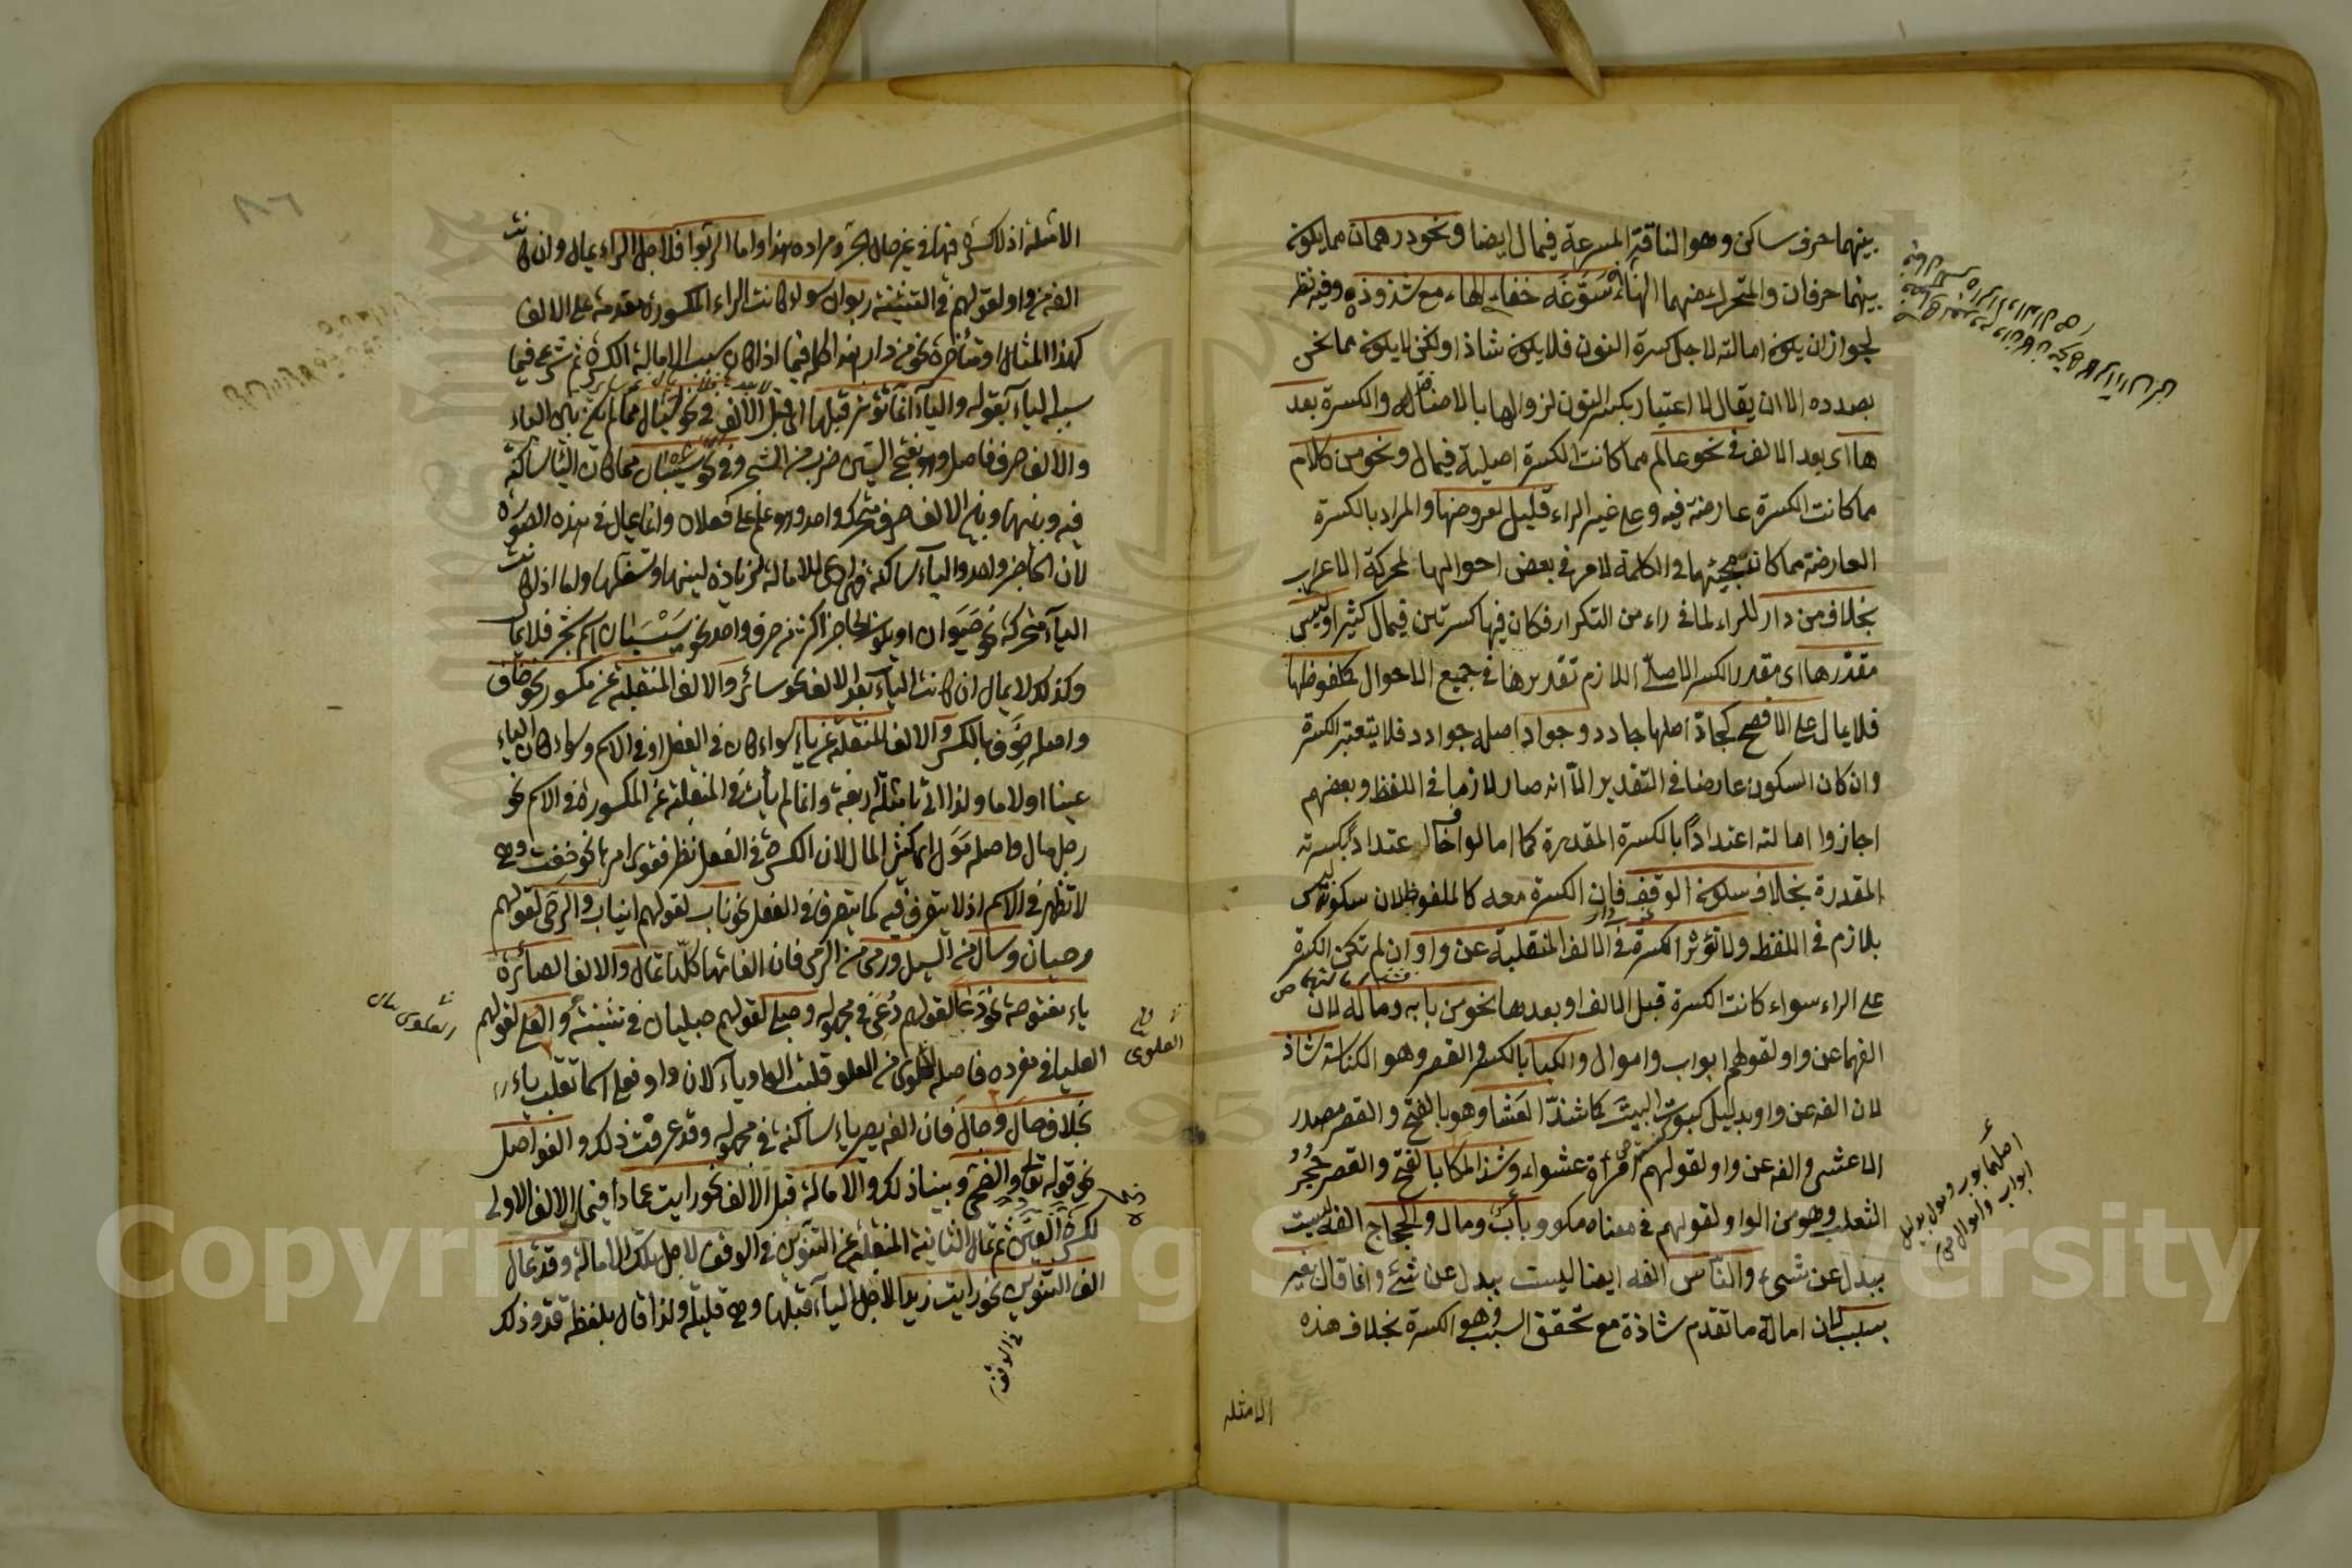 بينهما حرف ساكن وهو الناقة المسرعة فيمال ايضا ونحو درهمان مما يكون
بينهما حرفان والمتحرك منهما الهاء سَوَّغَه خفاء الهاء مع شذوذه وفيه نظر
لجواز ان يكون امالته لاجل كسرة النون فلا يكون شاذا ولكن لا يكون مما نحن
بصدده الا ان يقال لا اعتبار بكسر النون لزوالها بالاضافة والكسرة بعد
ها اى بعد الالف فى نحو عالم مما كانت الكسرة اصلية فيمال ونحو من كلام
مما كانت الكسرة عارضة فيه وعلى غير الراء قليل لعروضها والمراد بالكسرة
العارضة مما كانت مجيئها فى الكلمة لامر فى بعض احوالها لحركة الاعراب
بخلاف من دار للراء لما فى راء من التكرار فكان فيها كسرتين فيمال كثيرا وليس
مقدرها اى مقدر الكسر الاصلى اللازم تقديرها فى جميع الاحوال كملفوظها
فلا يمال على الافصح كجادّ اصلها جادد وجوادّ اصله جوادد فلا يعتبر الكسرة
وان كان السكون عارضا فى التقدير الا انه صار لازما فى اللفظ وبعضهم
اجازوا امالته اعتدادًا بالكسرة المقدرة كما امالوا خاف اعتدادا بكسرته
المقدرة بخلاف سكون الوقف فان الكسرة معه كالملفوظ لان سكونه ليس
بلازم فى اللفظ ولا تؤثر الكسرة فى الالف المنقلبة عن واو ان لم تكن الكسرة
على الراء سواء كانت الكسرة قبل الالف او بعدها نحو من بابه وماله لان
الفهما عن واو لقولهم ابواب واموال والكبا بالكسر والقصر وهو الكناسة شاذ
لان الفه عن واو بدليل كبوت البيت كما شذّ العَشَا وهو بالفتح والقصر مصدر
الاعشى والفه عن واو لقولهم امرأة عشواء وشذ المكا بالفتح والقصر جُحْرُ
الثعلب وهو من الواو لقولهم فى معناه مكو وباب ومال والحجاج الفه ليست
ببدل عن شىء والناس الفه ايضا ليست ببدل عن شئ وانما قال بغير
سبب لان امالة ما تقدم شاذة مع تحقق السبب وهو الكسرة بخلاف هذه
الامثلة
اصلهما بوب ومول بدليل
ابواب واموال
الامثلة اذ لا كسرة فيها فى غير حال الجر ومراده هذا واما الربوا فلاجل الراء يمال وان كانت
الفه من واو لقولهم فى التثنية ربوان سواء كانت الراء المكسورة مقدمة على الالف
كهذا المثال او متأخرة نحو من دار هذا كله فيما اذا كان سبب الامالة الكسرة ثم شرع فيما
سببه الياء بقوله والياء انما تؤثر قبلها اى قبل الالف فى نحو سَيَال مما لم يكن بين الياء
والالف حرف فاصل وهو بفتح السين ضرب من الشجر وفى نحو شيبان مما كان الياء ساكنة
فيه وبينها وبين الالف حرف متحرك واحد وهو علم على فعلان وانما يمال فى هذه الصورة
لان الحاجز واحد والياء ساكنة فهى ادعى للامالة لزيادة لينها وتسفلها واما اذا كانت
الياء متحركة نحو حَيَوان او يكون الحاجز اكثر من حرف واحد نحو سَيْسَبَان اسم شجر فلا يمال
وكذلك لا يمال ان كانت الياء بعد الالف نحو سائر والالف المنقلبة عن مكسور نحو خاف
واصله خَوِف بالكسر والالف المنقلبة عن ياء سواء كان فى الفعل او فى الاسم وسواء كان الياء
عينا او لاما ولذا اتى بامثلة اربعة وانما لم يأت فى المنقلبة عن المكسورة فى الاسم نحو
رجل مال واصله مَوِل اى كثير المال لان الكسرة فى الفعل تظهر فقوى امرها نحو خفت وهى
لا تظهر فى الاسم اذ لا يتصرف فيه كما يتصرف فى الفعل نحو ناب لقولهم انياب والرحى لقولهم
رحيان وسال من السيل ورمى من الرمى فان الفاتها كلها تمال والالف الصائرة
ياء مفتوحة نحو دَعَا لقولهم دُعِىَ فى مجهوله وحبلى لقولهم حبليان فى تثنيته والعلى لقولهم
العليا فى مفرده فاصله العلوى من العلو قلبت الواو ياء لان واو فعلى اسما تقلب ياء
بخلاف جال وحال فان الفه يصير ياء ساكنة فى مجهوله وقد عرفت ذلك والفواصل
نحو قوله تعالى والضحى وبينا ذلك والامالة قبل الالف نحو رايت عمادا فيمال الالف الاولى
لكسرة العين ثم تمال الثانية المنقلبة عن التنوين فى الوقف لاجل تلك الامالة وقد تمال
الف التنوين نحو رايت زيدا لاجل الياء قبلها وهى قليلة ولذا قال بلفظة قد وذلك
فى الوقف
العلوى
٨٦
Copyright © King Saud University